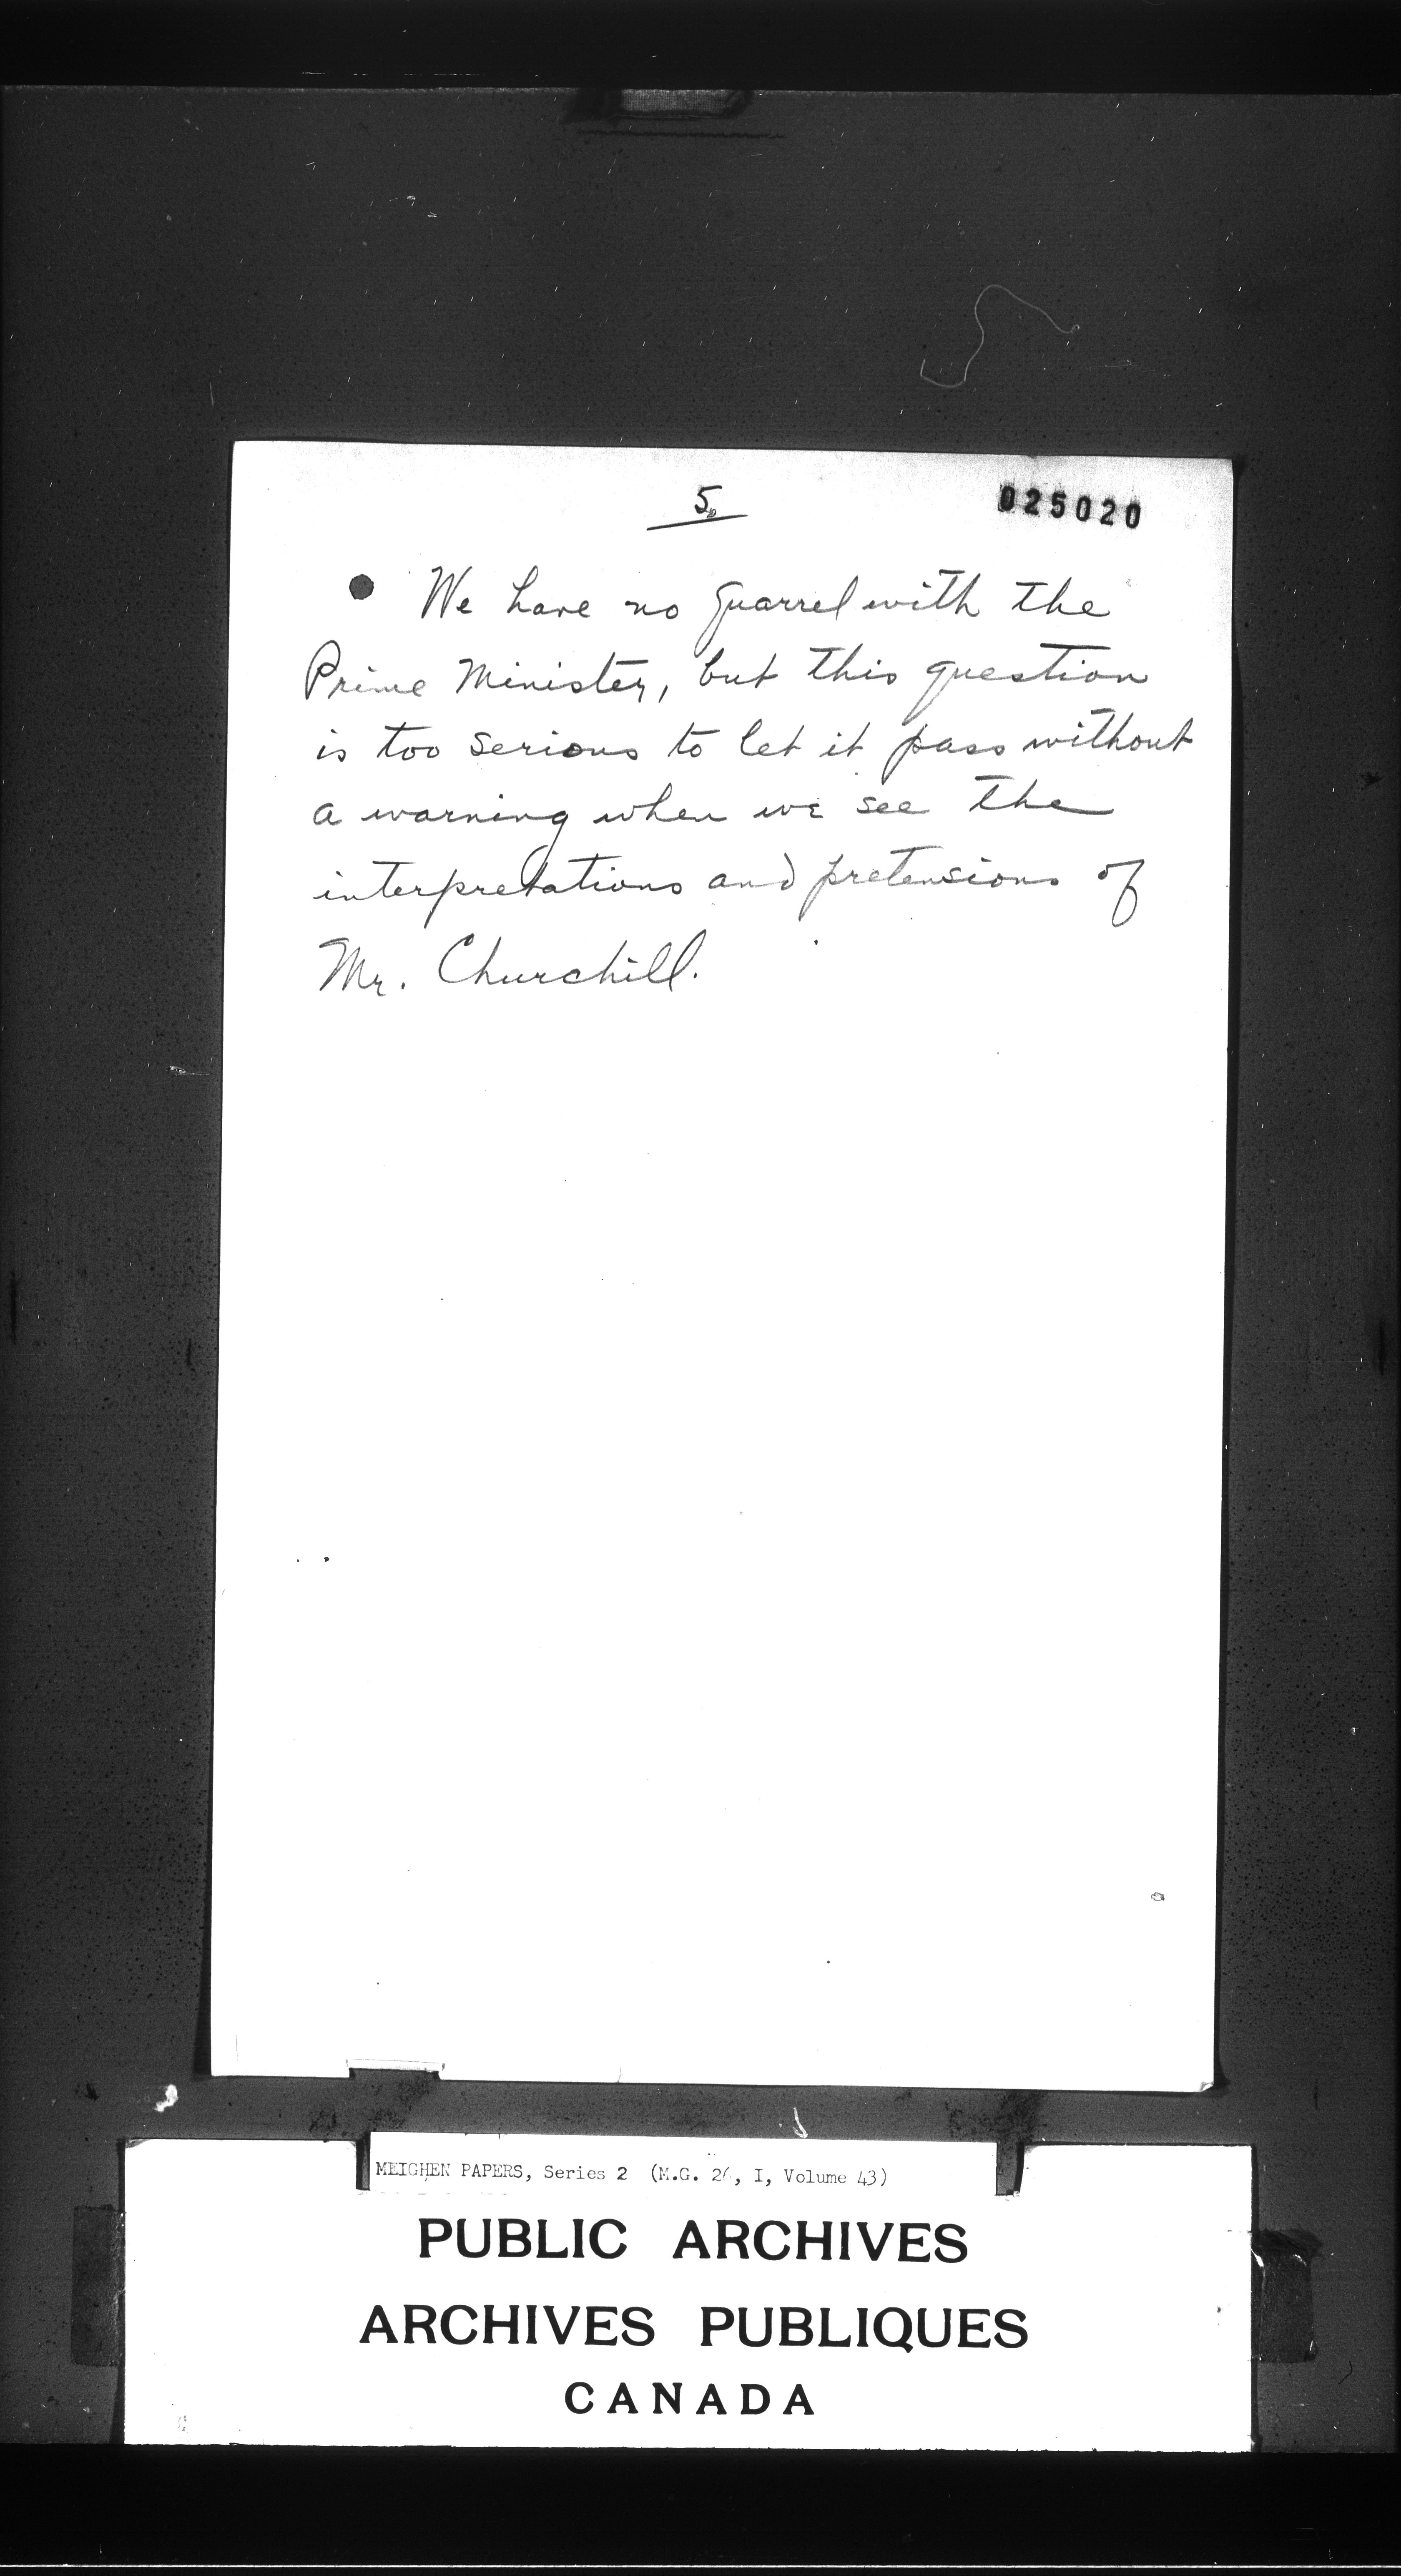 5.
025020
We have no quarrel with the
Prime Minister, but this question
is too serious to let it pass without
a warning when we see the
interpretations and pretensions of
Mr. Churchill.
MEIGHEN PAPERS, Series 2 (M.G. 26, I, Volume 43)
PUBLIC ARCHIVES
ARCHIVES PUBLIQUES
CANADA